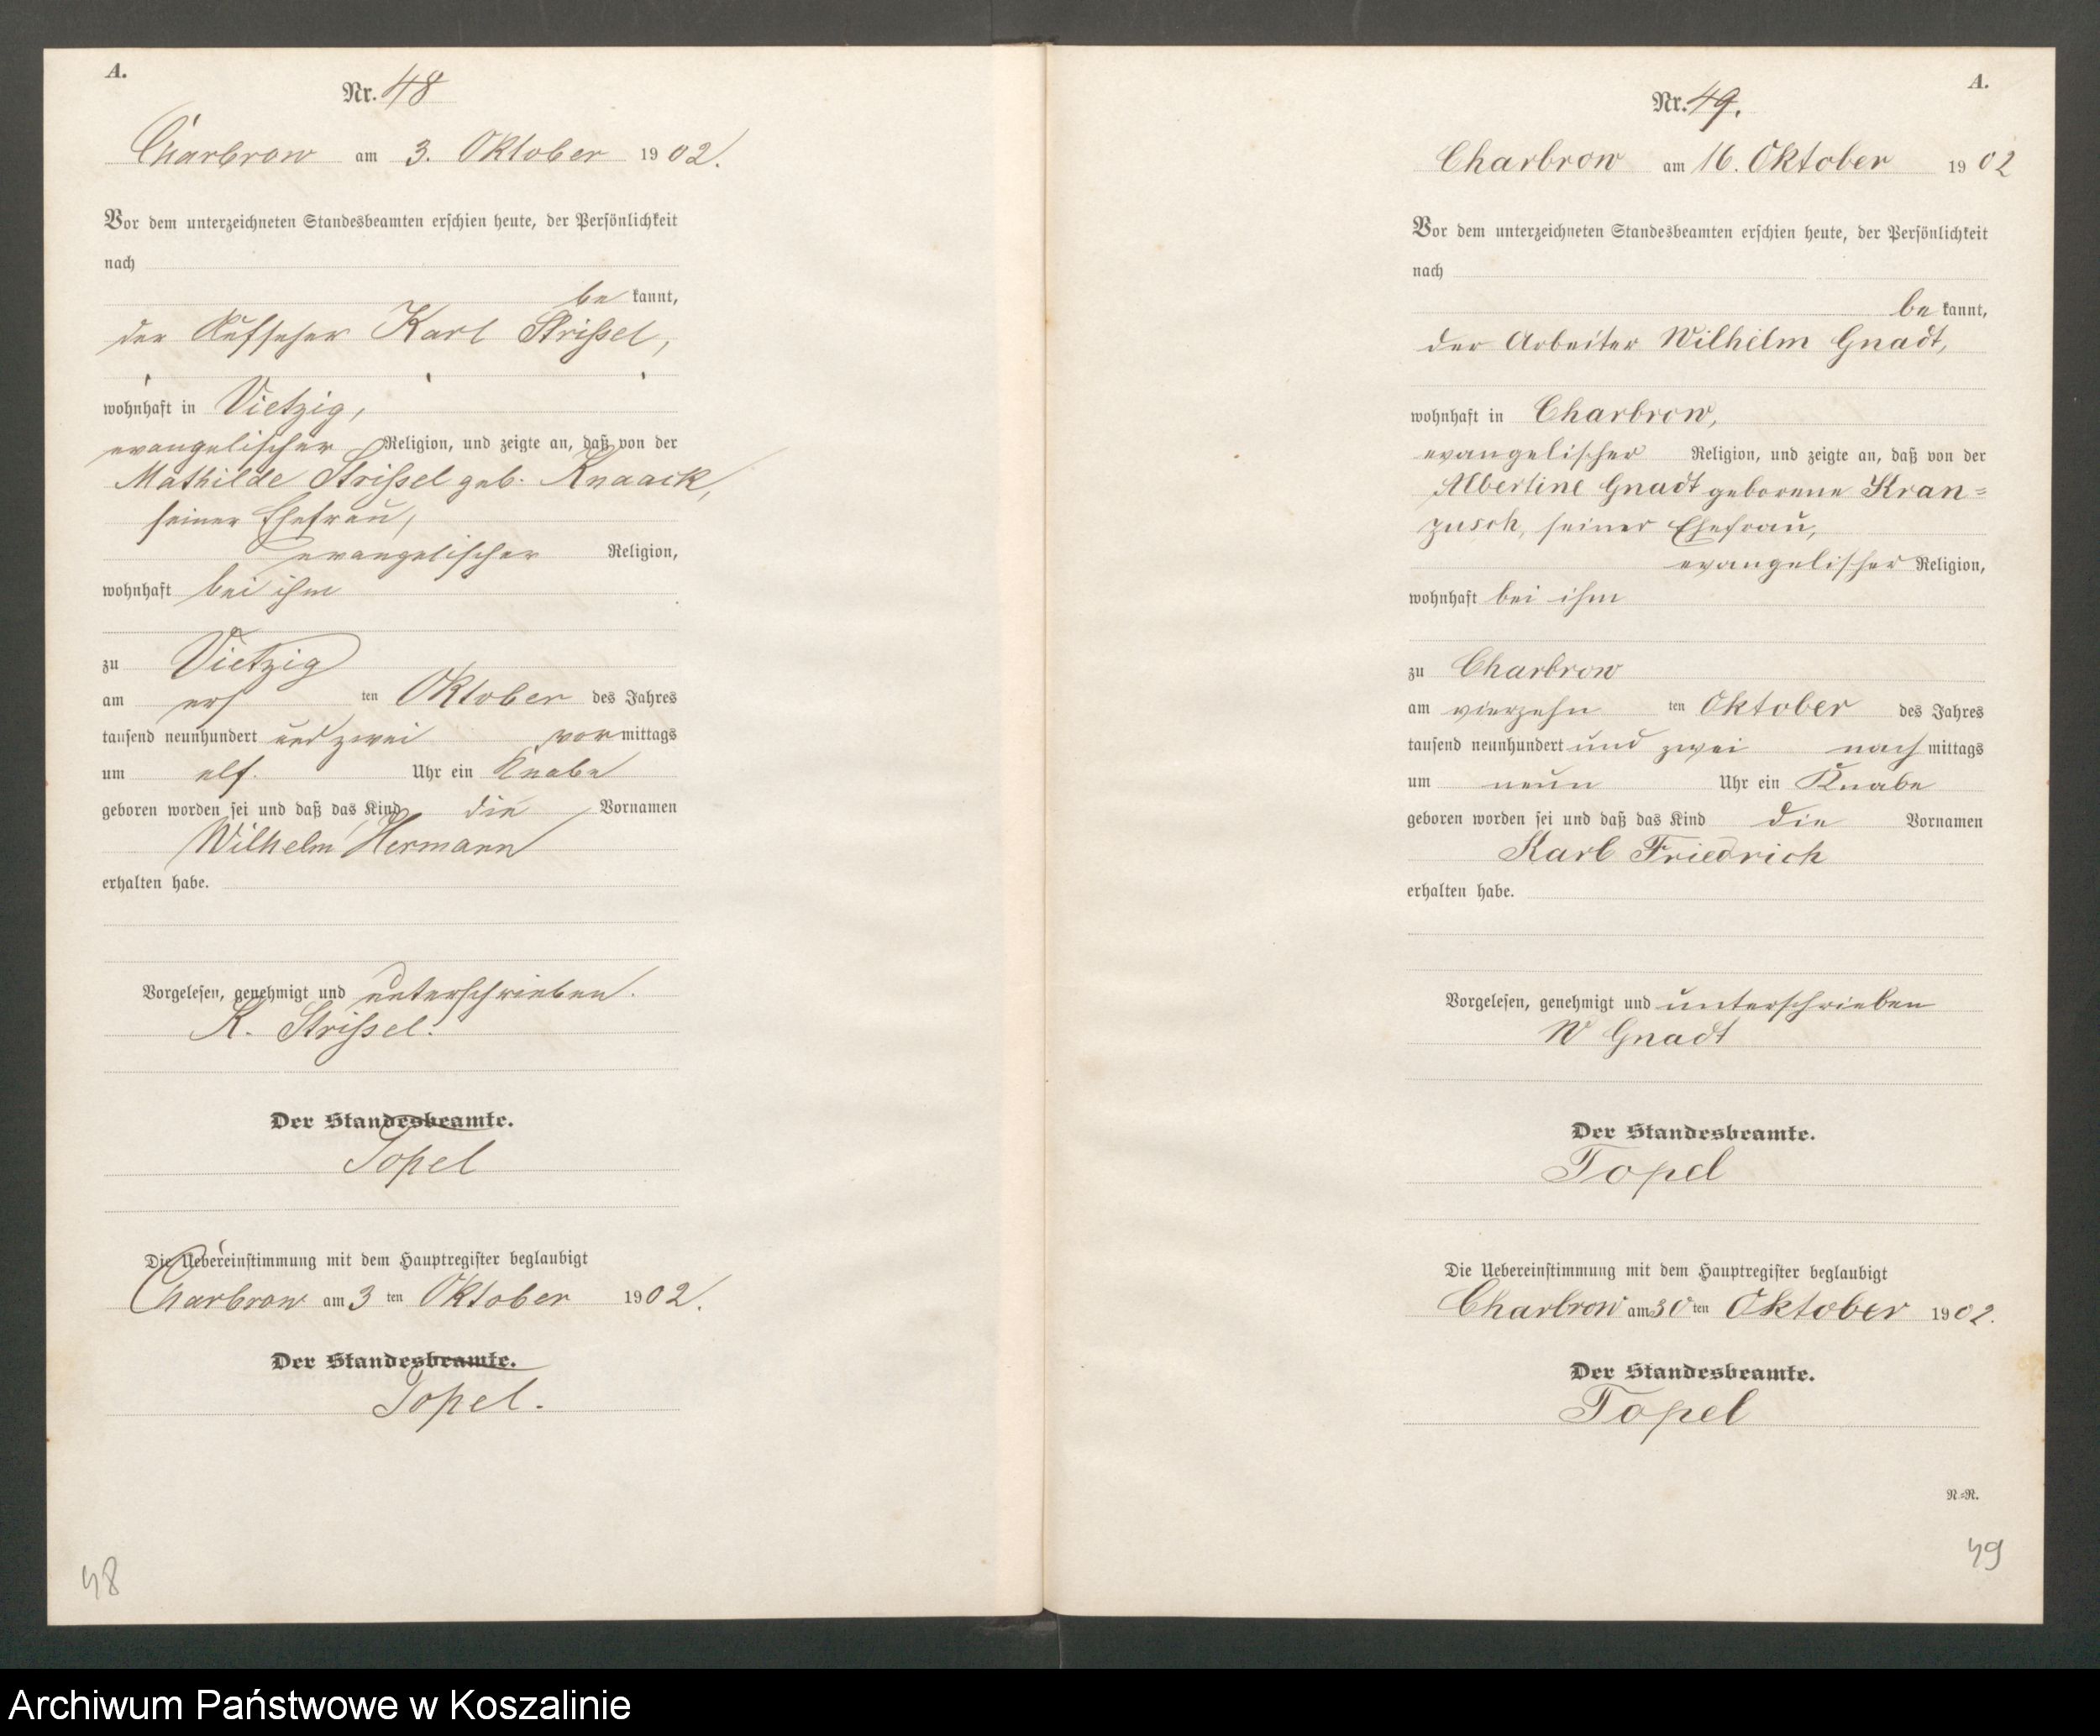 A.
Nr. 48
Charbrow am 3. Oktober 1902.
Vor dem unterzeichneten Standesbeamten erschien heute, der Persönlichkeit
nach
be kannt,
der Aufseher Karl Strißel,
wohnhaft in Vietzig,
evangelischer Religion, und zeigte an, daß von der
Mathilde Strißel geb. Knaack,
seiner Ehefrau,
evangelischer Religion,
wohnhaft bei ihm
zu Vietzig
am ers ten Oktober des Jahres
tausend neunhundert und zwei vor mittags
um elf Uhr ein Knabe
geboren worden sei und daß das Kind die Vornamen
Wilhelm Hermann
erhalten habe.
Vorgelesen, genehmigt und unterschrieben.
K. Strißel.
Der Standesbeamte.
Topel
Die Uebereinstimmung mit dem Hauptregister beglaubigt
Charbrow am 3 ten Oktober 1902.
Der Standesbeamte.
Topel.
48
A.
Nr. 49.
Charbrow am 16. Oktober 1902
Vor dem unterzeichneten Standesbeamten erschien heute, der Persönlichkeit
nach
be kannt,
der Arbeiter Wilhelm Gnadt,
wohnhaft in Charbrow,
evangelischer Religion, und zeigte an, daß von der
Albertine Gnadt geborene Kran=
zusch, seiner Ehefrau,
evangelischer Religion,
wohnhaft bei ihm
zu Charbrow
am vierzehn ten Oktober des Jahres
tausend neunhundert und zwei nach mittags
um neun Uhr ein Knabe
geboren worden sei und daß das Kind die Vornamen
Karl Friedrich
erhalten habe.
Vorgelesen, genehmigt und unterschrieben
W Gnadt
Der Standesbeamte.
Topel
Die Uebereinstimmung mit dem Hauptregister beglaubigt
Charbrow am 30 ten Oktober 1902.
Der Standesbeamte.
Topel
N.=N.
49
Archiwum Państwowe w Koszalinie